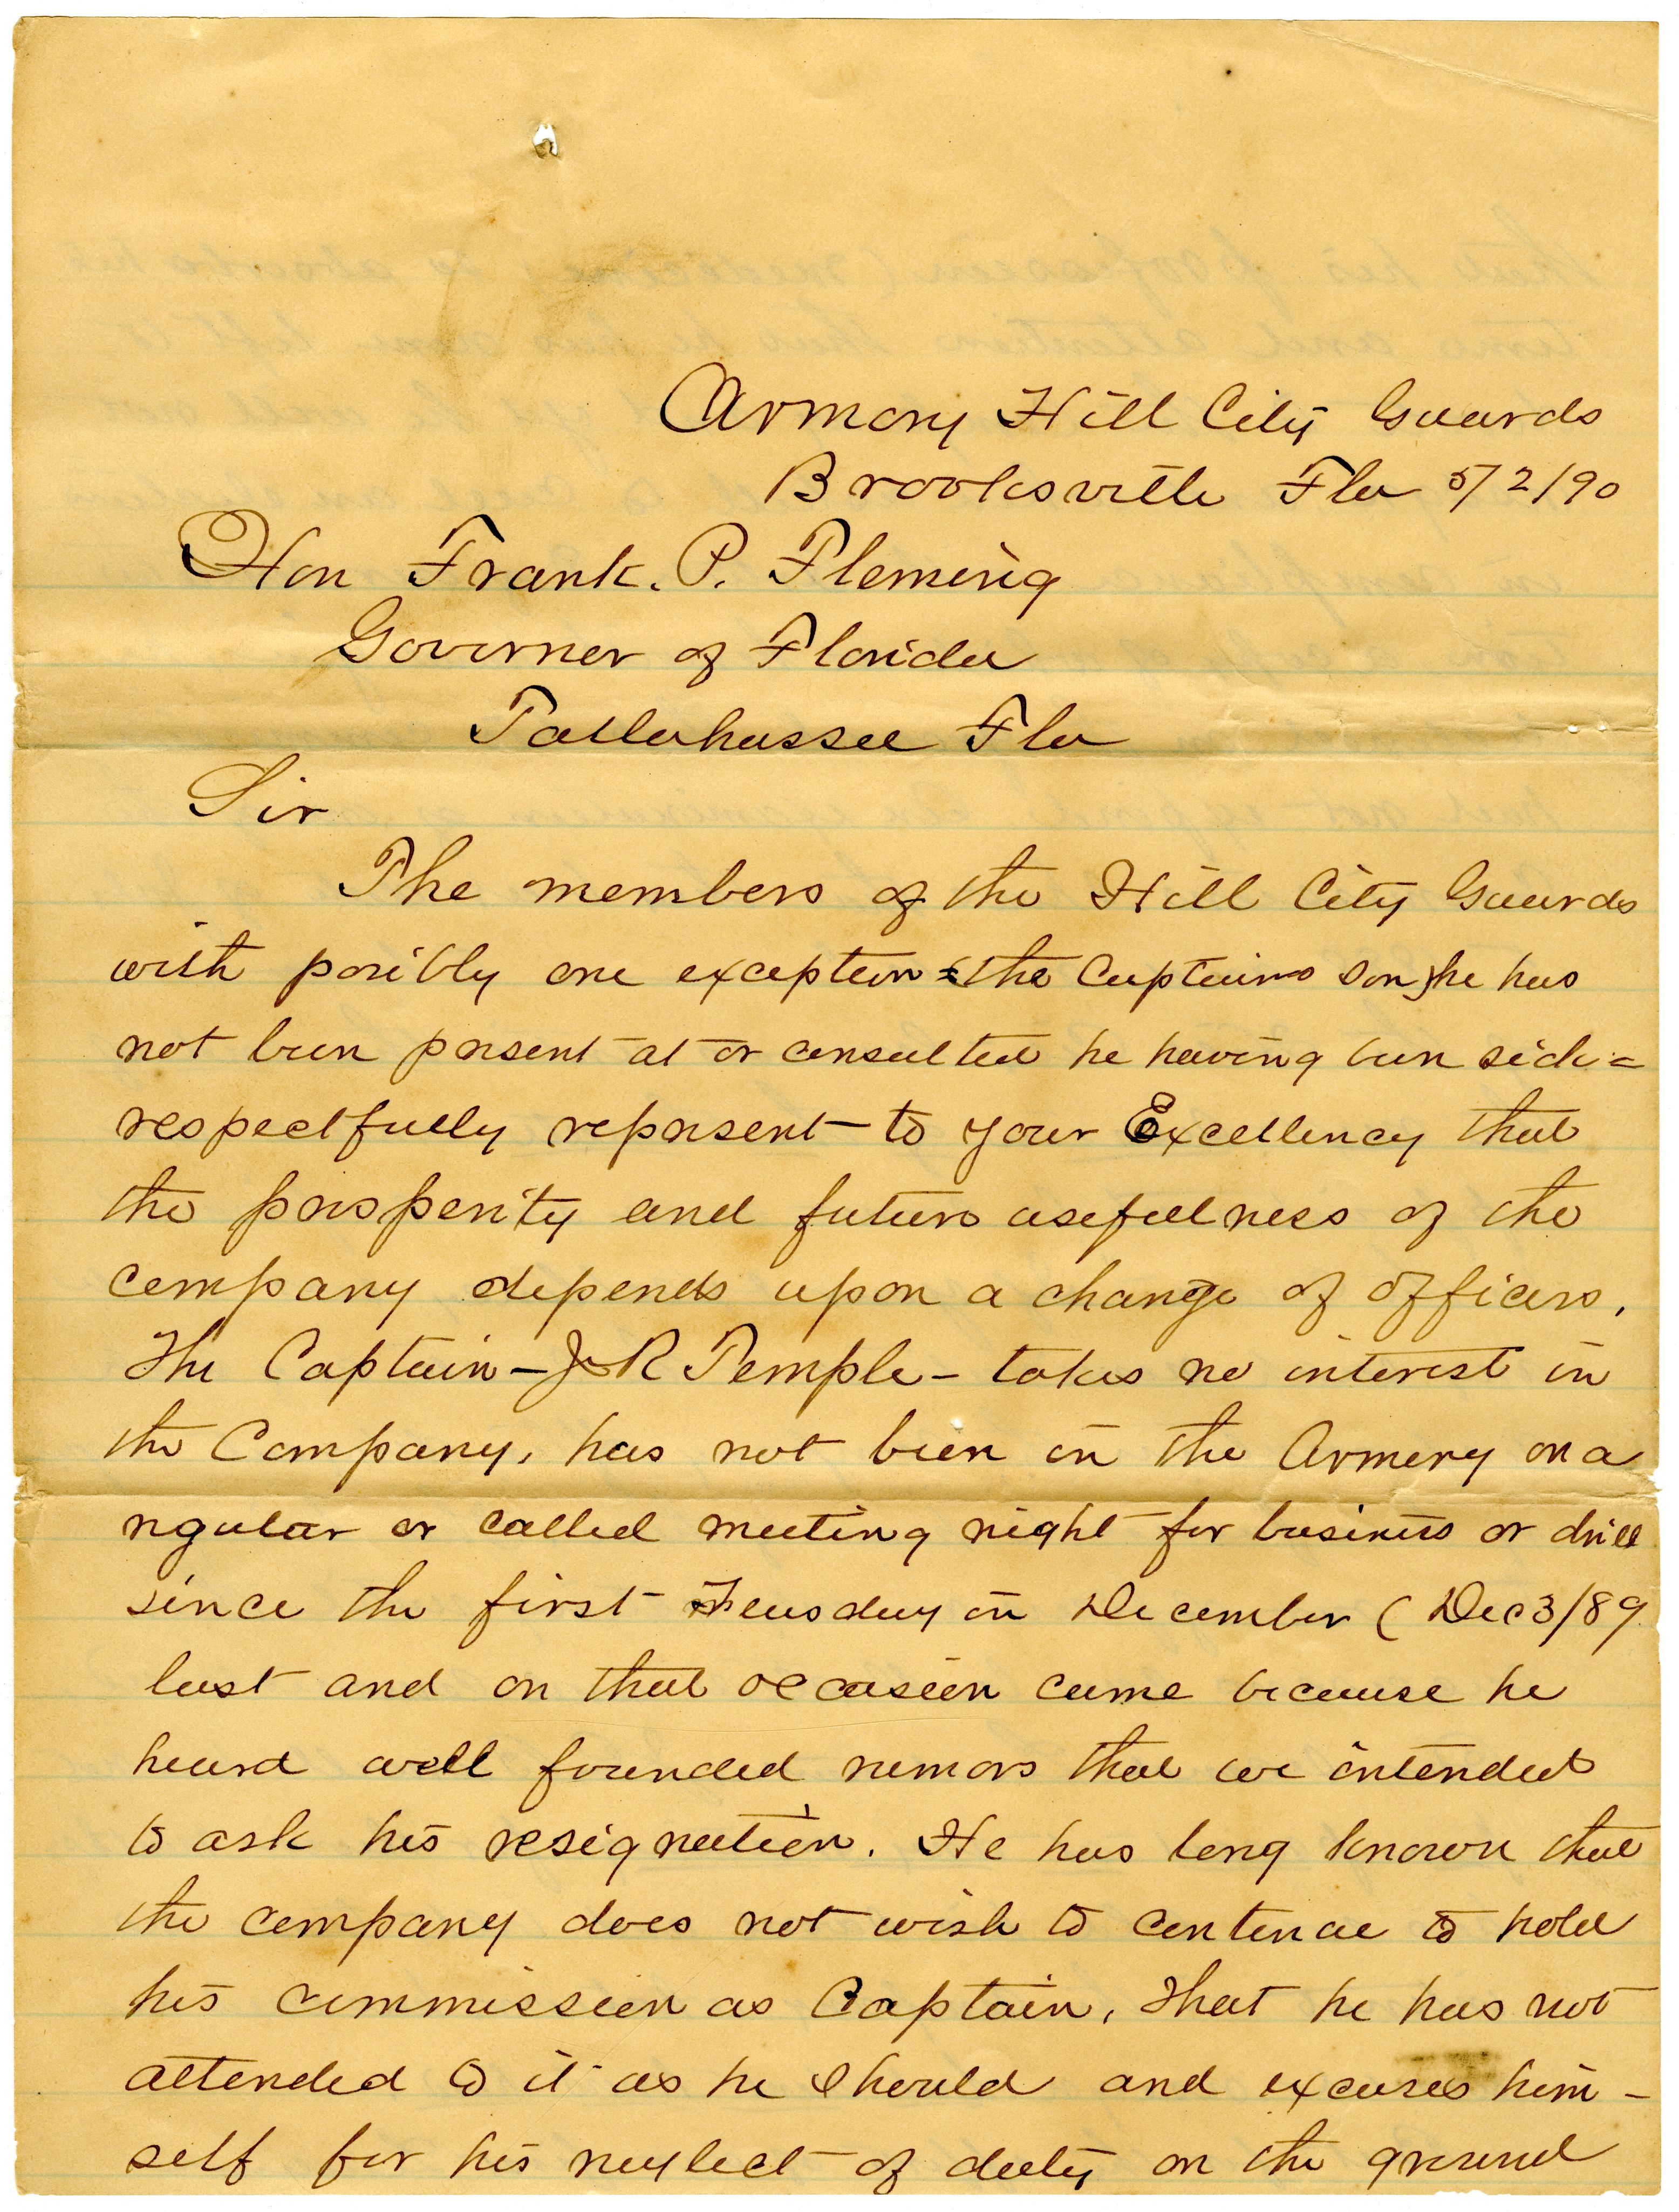 Armory Hill City Guards
Brooksville Fla 5/2/90
Hon Frank. P. Fleming
Governer of Florida
Tallahassee Fla
Sir
The members of the Hill City Guards
with posibly one exception (the Captains son) he has
not been present at or consulted he having been sick =
respectfully represent to your Excellency that
the prosperity and future usefulness of the
company depends upon a change of officers.
The Captain - J R Temple - takes no interest in
the Company, has not been in the Armory on a
regular or called meeting night for business or drill
since the first Tuesday in December ( Dec 3/89
last and on that occasion came because he
heard well founded rumors that we intended
to ask his resignation. He has long known that
the company does not wish to continue to hold
his commission as Captain, that he has not
attended to it as he should and excuses him -
self for his neglect of duty on the ground